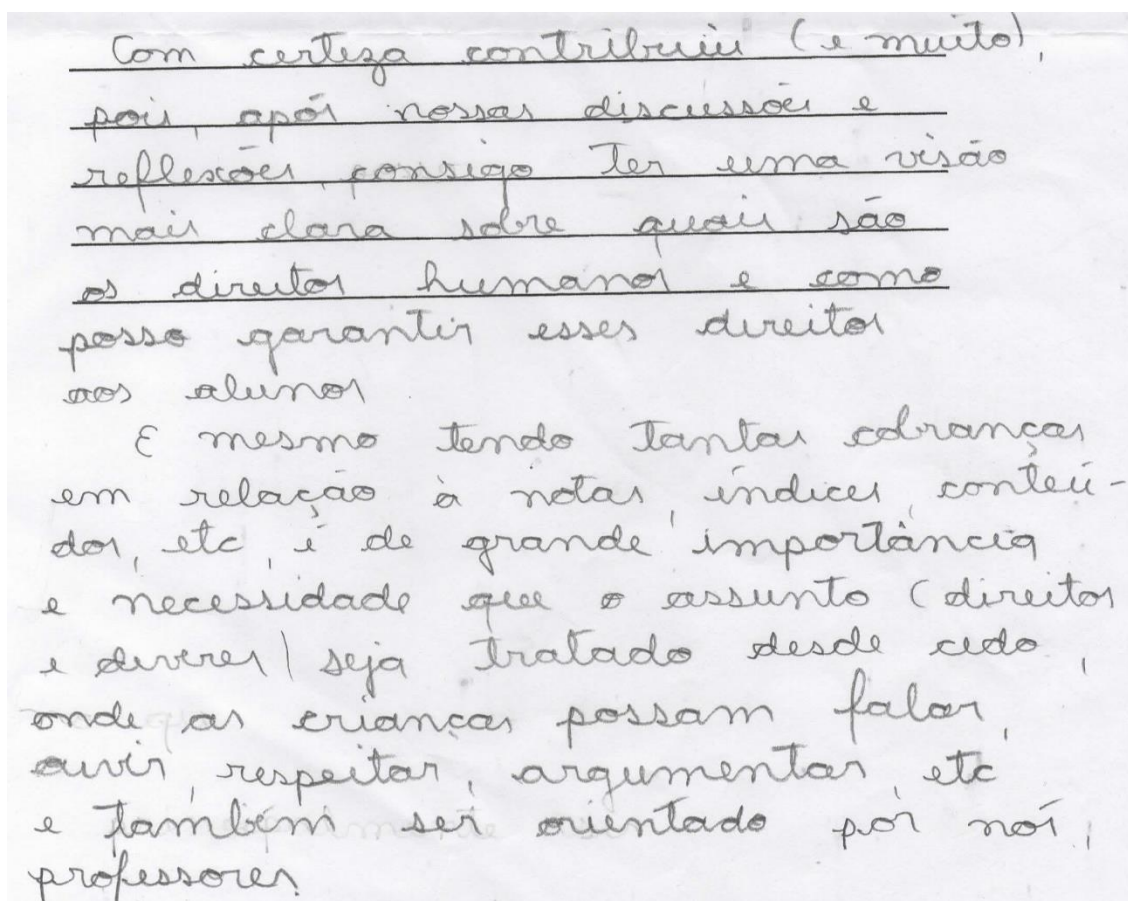 Com certeza contribuiu (e muito),
pois, após nossas discussões e
reflexões, consigo ter uma visão
mais clara sobre quais são
os direitos humanos e como
posso garantir esses direitos
aos alunos
E mesmo tendo tantas cobranças
em relação à notas, índices, conteú-
dos, etc, é de grande importância
e necessidade que o assunto (direitos
e deveres) seja tratado desde cedo,
onde as crianças possam falar,
ouvir, respeitar, argumentar, etc
e também ser orientado por nós,
professores.